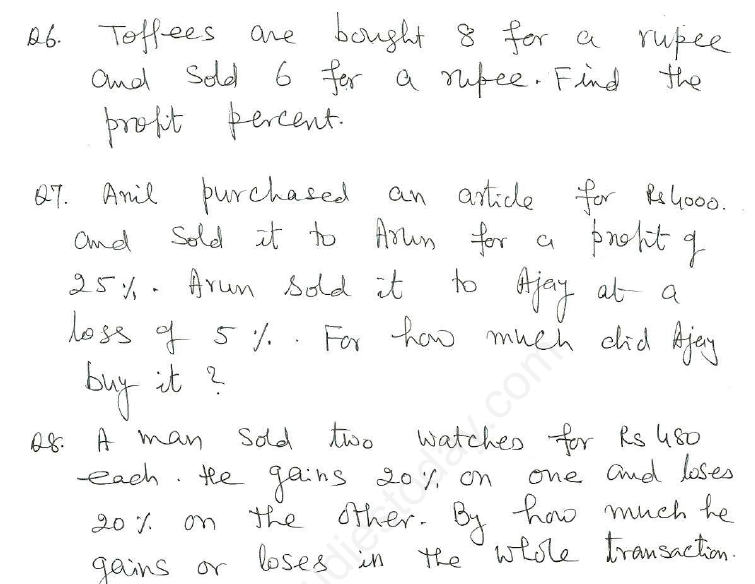 Q6. Toffees are bought 8 for a rupee
and sold 6 for a rupee. Find the
profit percent.
Q7. Anil purchased an article for Rs4000.
and sold it to Arun for a profit of
25%. Arun sold it to Ajay at a
loss of 5%. For how much did Ajay
buy it?
Q8. A man sold two watches for Rs 480
each. He gains 20% on one and loses
20% on the other. By how much he
gains or loses in the whole transaction.
udiestoday.com